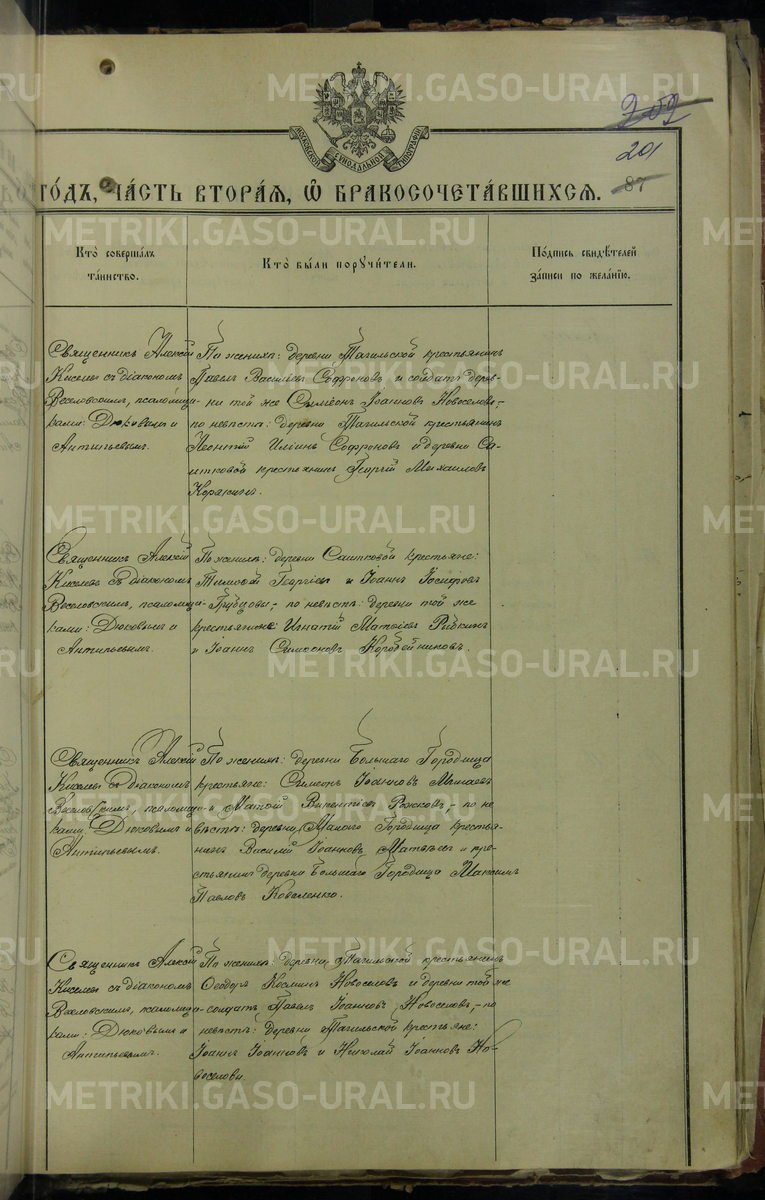 METRIKI.GASO-URAL.RU
МОСКОВСКОЙ СѴНОДАЛЬНОЙ ТИПОГРАФІИ
202
201
87
го́дъ, ча́сть втора́я, ѡ҆ бракосочета́вшихся.
Кто̀ соверша́лъ
та́инство.
Кто̀ бы́ли поручи́тели.
По́дпись свидѣ́телей
за́писи по жела́нїю.
Священникъ Алексій
Киселевъ съ діакономъ
Веселовскимъ, псаломщи-
ками: Дюковымъ и
Антипьевымъ.
По женихѣ: деревни Тагильской крестьянинъ
Павелъ Василіевъ Софроновъ и солдатъ дерев-
ни той же Симеонъ Іоанновъ Новоселовъ;
по невѣстѣ: деревни Тагильской крестьянинъ
Леонтій Илiинъ Софроновъ и деревни Са-
итковой крестьянинъ Георгій Михаиловъ
Корякинъ.
Священникъ Алексій
Киселевъ съ діакономъ
Веселовскимъ, псаломщи-
ками: Дюковымъ и
Антипьевымъ.
По женихѣ: деревни Саитковой крестьяне:
Тимофей Георгіевъ и Іоаннъ Іосифовъ
по невѣстѣ: деревни той же
крестьяне: Игнатій Матѳіевъ Рыбкинъ
и Іоаннъ Симеоновъ Коробейниковъ.
Священникъ Алексій
Киселевъ съ діакономъ
Веселовскимъ, псаломщи-
ками: Дюковымъ и
Антипьевымъ.
По женихѣ: деревни Большаго Городища
крестьяне: Симеонъ Іоанновъ
и Матѳій Викентіевъ Рожковъ, – по не-
вѣстѣ: деревни Малого Городища кресть-
янинъ Василій Іоанновъ Матвѣевъ и кре-
стьянинъ деревни Большаго Городища Максимъ
Павловъ Коваленко.
Священникъ Алексій
Киселевъ съ діакономъ
Веселовскимъ, псаломщи-
ками: Дюковымъ и
Антипьевымъ.
По женихѣ: деревни Тагильской крестьянинъ
Ѳеодоръ Косминъ Новоселовъ и деревни той же
солдатъ Павелъ Іоанновъ Новоселовъ, – по
невѣстѣ: деревни Тагильской крестьяне:
Іоаннъ Іоанновъ и Николай Іоанновъ Но-
воселовы.